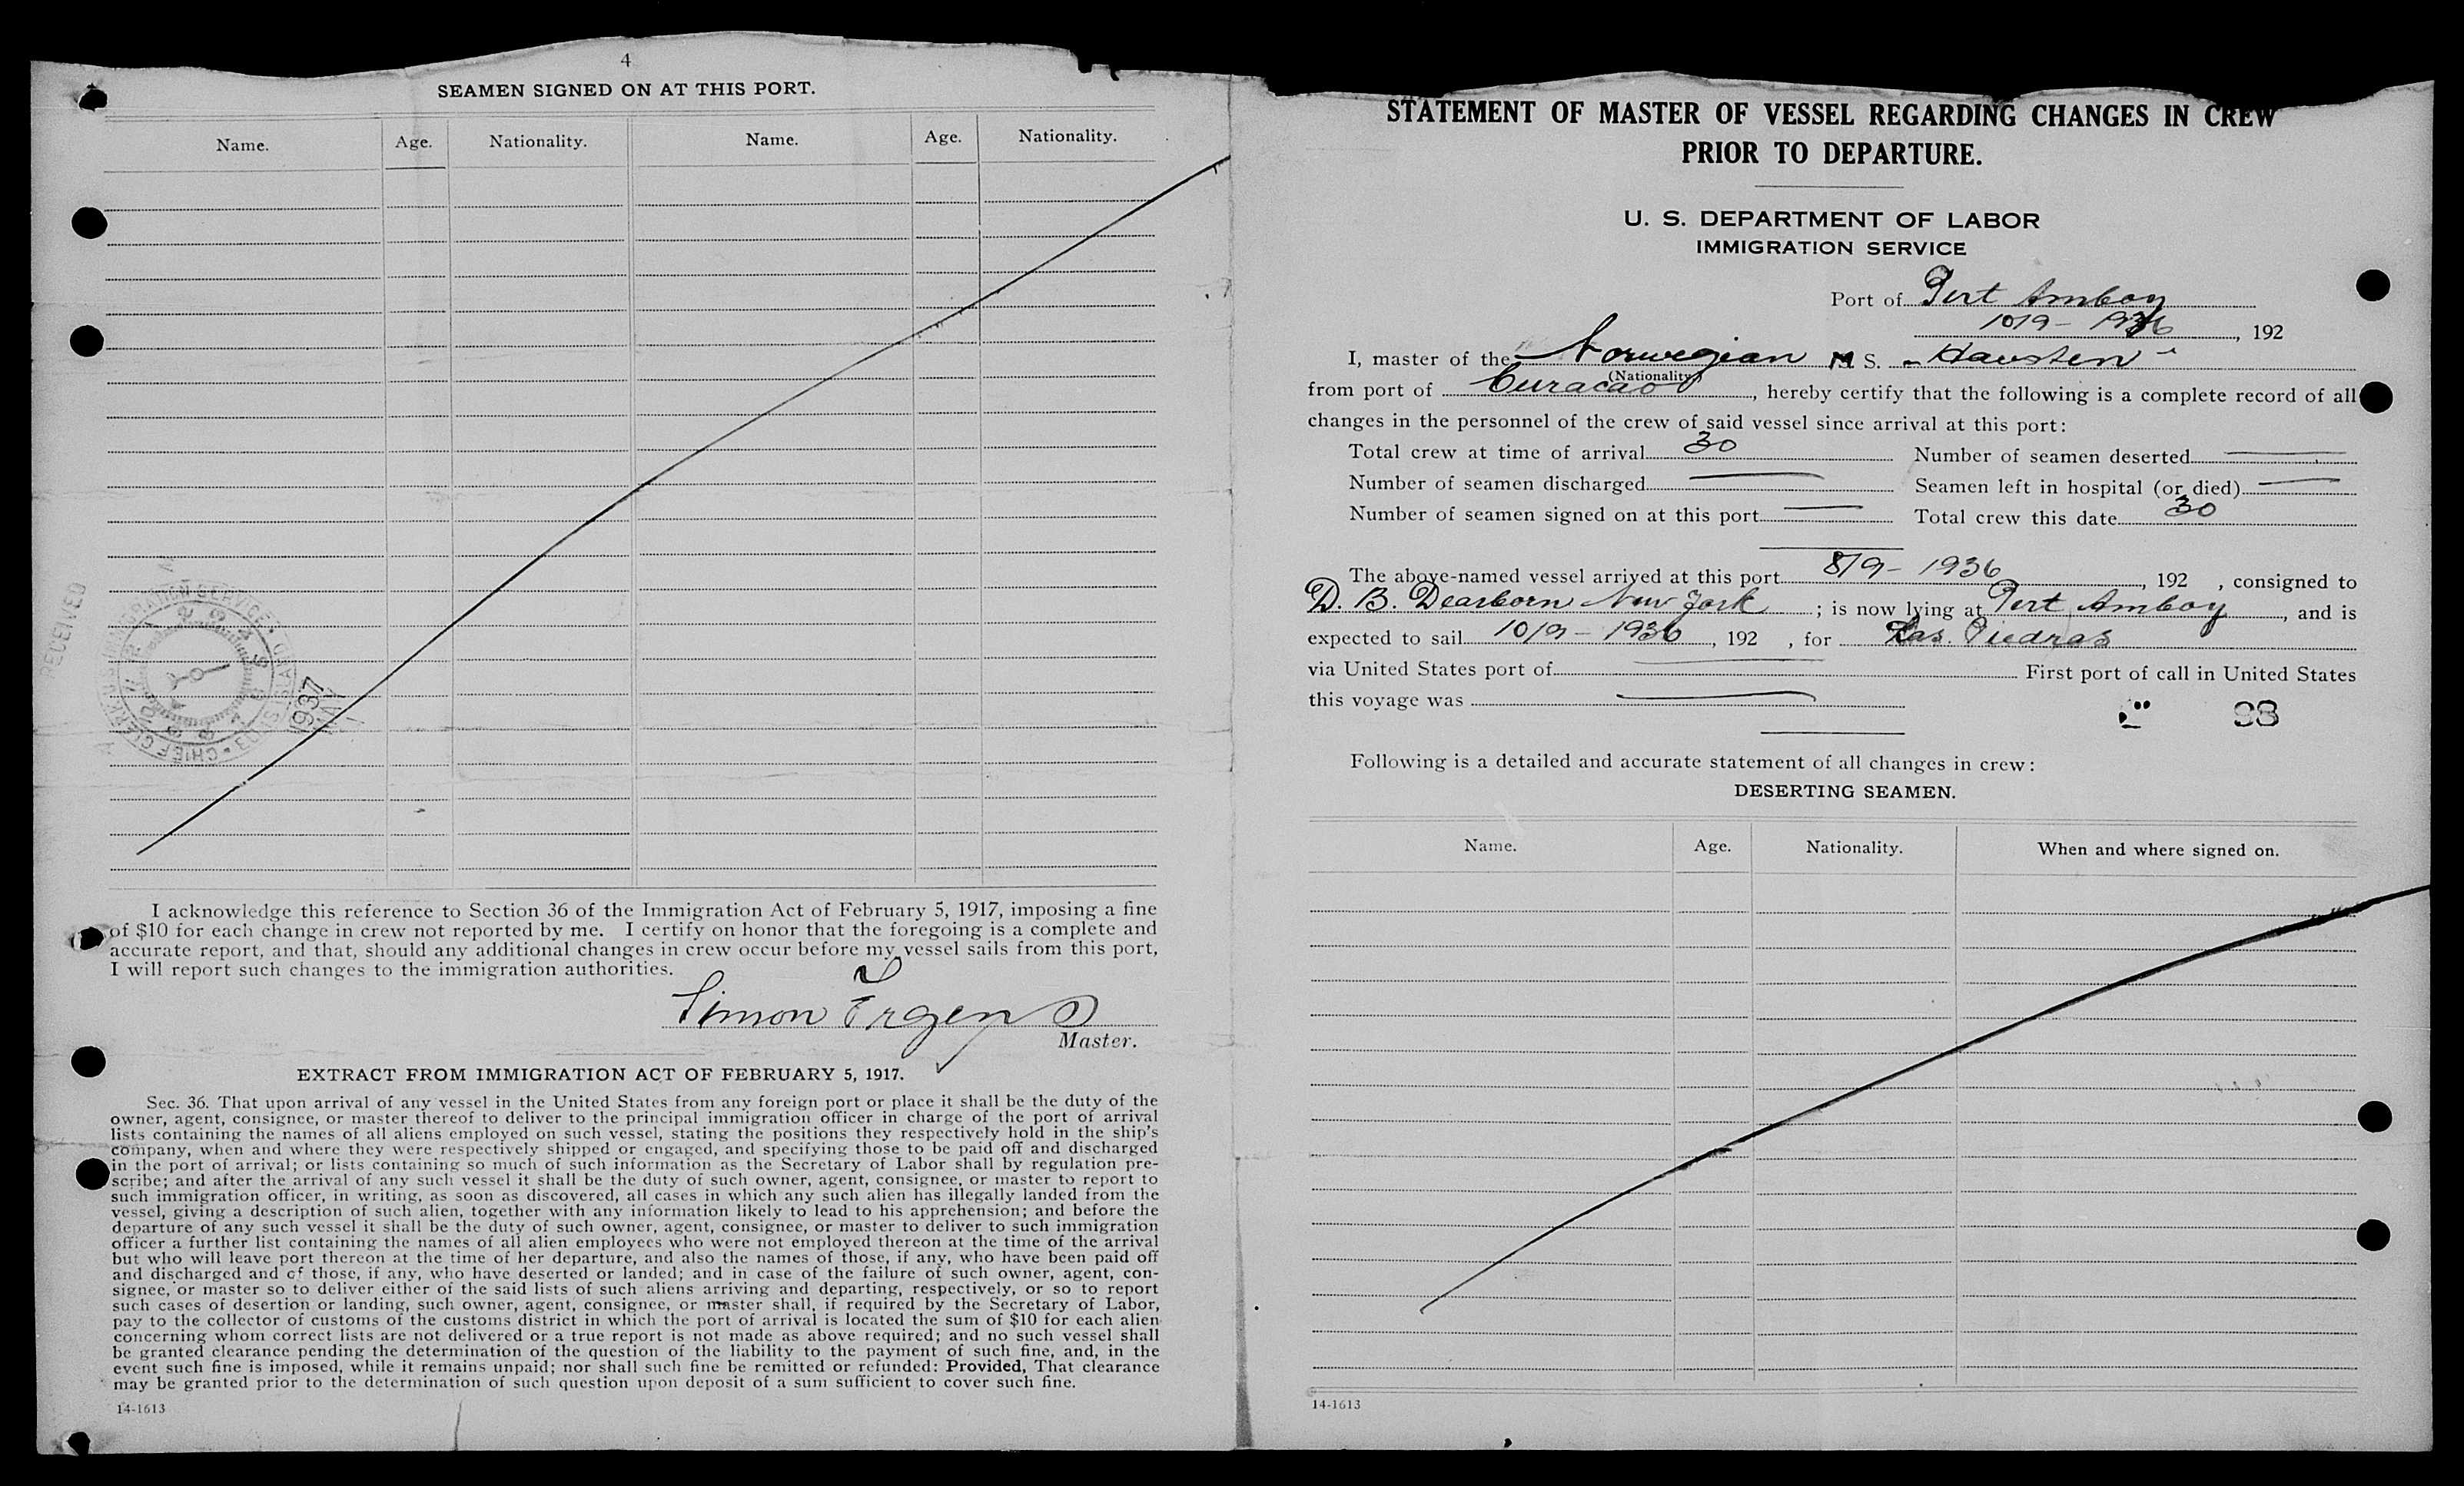 4
SEAMEN SIGNED ON AT THIS PORT.
Name. Age. Nationality. Name. Age. Nationality.
RECEIVED
1937
MAY
I acknowledge this reference to Section 36 of the Immigration Act of February 5, 1917, imposing a fine
of $10 for each change in crew not reported by me. I certify on honor that the foregoing is a complete and
accurate report, and that, should any additional changes in crew occur before my vessel sails from this port,
I will report such changes to the immigration authorities.
Simon
Master.
EXTRACT FROM IMMIGRATION ACT OF FEBRUARY 5, 1917.
Sec. 36. That upon arrival of any vessel in the United States from any foreign port or place it shall be the duty of the
owner, agent, consignee, or master thereof to deliver to the principal immigration officer in charge of the port of arrival
lists containing the names of all aliens employed on such vessel, stating the positions they respectively hold in the ship's
company, when and where they were respectively shipped or engaged, and specifying those to be paid off and discharged
in the port of arrival; or lists containing so much of such information as the Secretary of Labor shall by regulation pre-
scribe; and after the arrival of any such vessel it shall be the duty of such owner, agent, consignee, or master to report to
such immigration officer, in writing, as soon as discovered, all cases in which any such alien has illegally landed from the
vessel, giving a description of such alien, together with any information likely to lead to his apprehension; and before the
departure of any such vessel it shall be the duty of such owner, agent, consignee, or master to deliver to such immigration
officer a further list containing the names of all alien employees who were not employed thereon at the time of the arrival
but who will leave port thereon at the time of her departure, and also the names of those, if any, who have been paid off
and discharged and of those, if any, who have deserted or landed; and in case of the failure of such owner, agent, con-
signee, or master so to deliver either of the said lists of such aliens arriving and departing, respectively, or so to report
such cases of desertion or landing, such owner, agent, consignee, or master shall, if required by the Secretary of Labor,
pay to the collector of customs of the customs district in which the port of arrival is located the sum of $10 for each alien
concerning whom correct lists are not delivered or a true report is not made as above required; and no such vessel shall
be granted clearance pending the determination of the question of the liability to the payment of such fine, and, in the
event such fine is imposed, while it remains unpaid; nor shall such fine be remitted or refunded: Provided, That clearance
may be granted prior to the determination of such question upon deposit of a sum sufficient to cover such fine.
14-1613
STATEMENT OF MASTER OF VESSEL REGARDING CHANGES IN CREW
PRIOR TO DEPARTURE.
U. S. DEPARTMENT OF LABOR
IMMIGRATION SERVICE
Port of Pert Amboy
10/9 - 1936, 192
I, master of the Norwegian M S. - Havsten -
(Nationality)
from port of Curacao, hereby certify that the following is a complete record of all
changes in the personnel of the crew of said vessel since arrival at this port:
Total crew at time of arrival 30 Number of seamen deserted
Number of seamen discharged Seamen left in hospital (or died)
Number of seamen signed on at this port Total crew this date 30
The above-named vessel arrived at this port 8/9 - 1936, 192 , consigned to
D. B. Dearborn New York ; is now lying at Pert Amboy, and is
expected to sail 10/9 - 1936, 192 , for Las Piedras
via United States port of First port of call in United States
this voyage was
Following is a detailed and accurate statement of all changes in crew:
DESERTING SEAMEN.
Name. Age. Nationality. When and where signed on.
14-1613